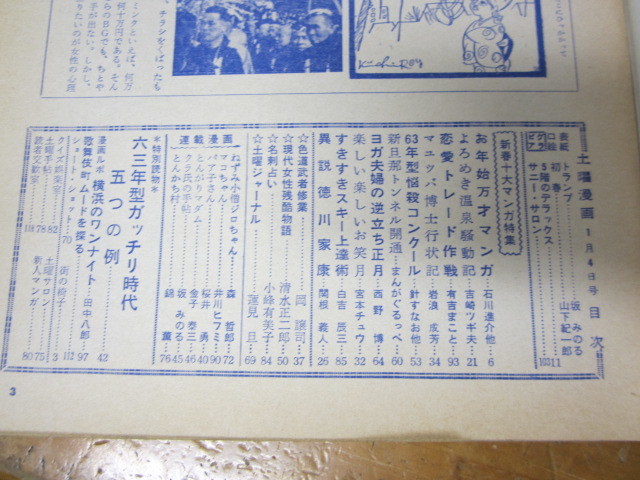 チラシをくばったも
ミンタといえば、何万
何十万円である。そん
らのBGでも、ちとや
手が出ない。しかし、
りたいのが女性の心理
土曜漫画 1月4日号 目次
表紙 トランプ 坂みのる
口絵 初春 山下紀一郎 11
グラビア 5階のデラックス
サニー・サロン 103
新春十大マンガ特集
お年始万才マンガ 石川進介他 6
よろめき温泉騒動記 吉崎ツギ夫 21
恋愛トレード作戦 有吉まこと 93
マユツバ博士行状記 岩浪成芳 34
63年型悩殺コンクール 針すなお他 53
新旦那トンネル開通 まんがぐるっぺ 60
ヨガ夫婦の逆立ち正月 西野博 64
楽しい楽しいお笑月 宮本チュウ 32
すきすきスキー上達術 白吉辰三 85
異説徳川家康 関根義人 26
☆色道武者修業 岡譲司 37
☆現代女性残酷物語 清水正二郎 50
☆名刺占い 小峰有美子 84
☆土曜ジャーナル 蓮見旦 69
連載漫画
ねずみ小僧ジロちゃん 森哲郎 72
ママちゃん 井川ヒフミ 90
バー子さん 桜井勇 40
とんがりマダム 金子泰三 46
クラ氏の手帖 坂みのる 45
とんかち村 錦薫 76
＊特別読物＊
六三年型ガッチリ時代
五つの例 43
漫画ルポ 横浜のワンナイト 田中八郎 97
歌舞伎町ムードを探る 112
ショート・ショット 70
街の椅子 3
クイズ誤診室 82
土曜サロン 75
土曜手帖 78
新人マンガ 80
読者交歓室 118
3